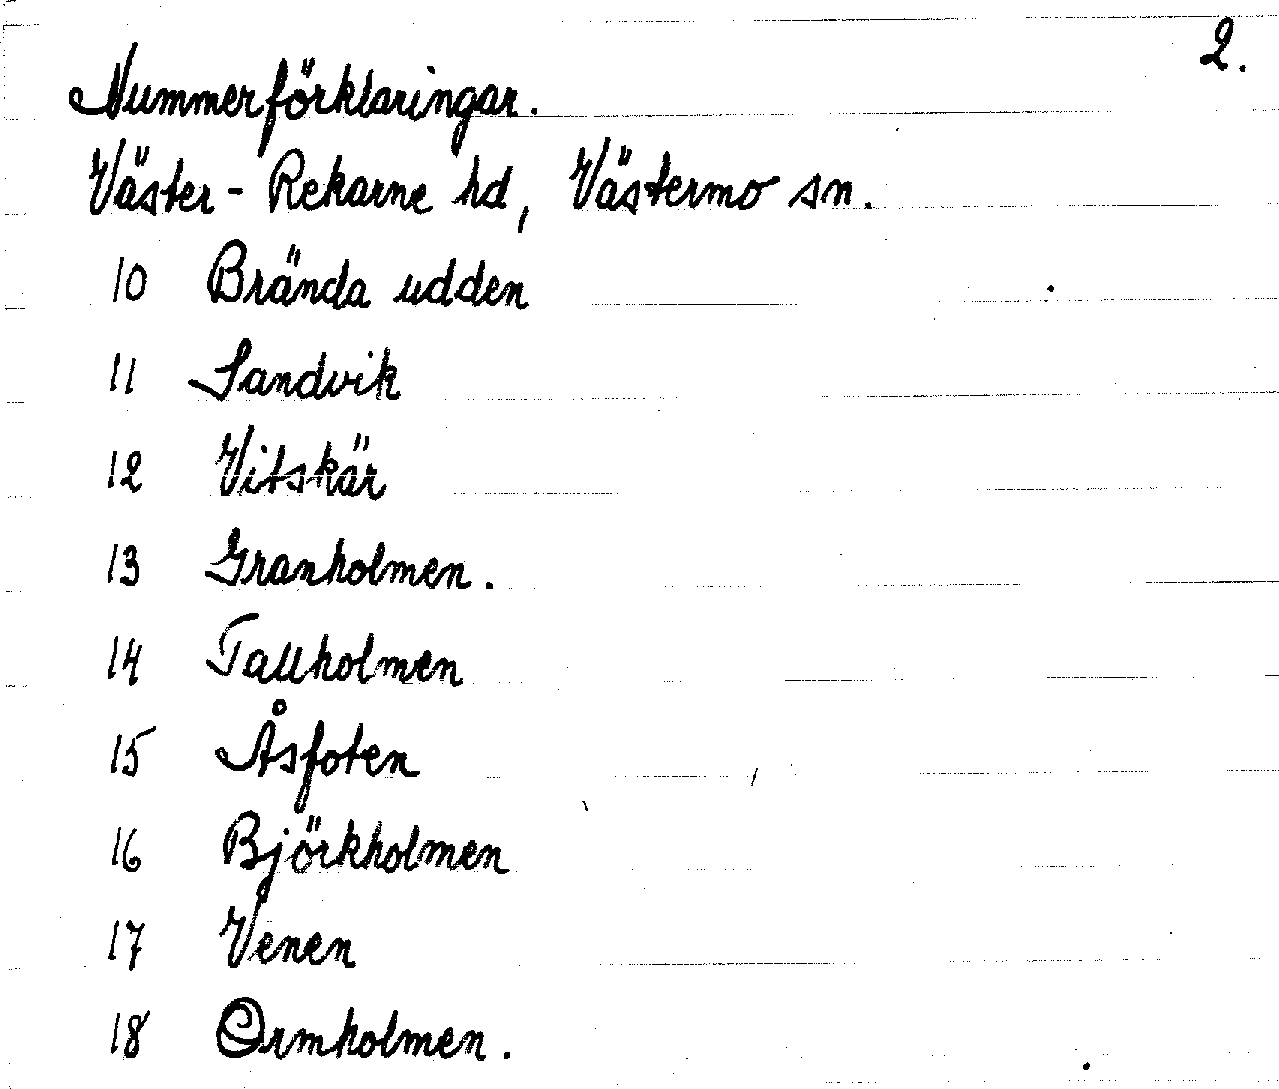 2.
Nummerförklaringar.
Väster-Rekarne hd, Västermo sn.
10 Brända udden
11 Sandvik
12 Vitskär
13 Granholmen.
14 Tallholmen
15 Åsfoten
16 Björkholmen
17 Venen
18 Ormholmen.